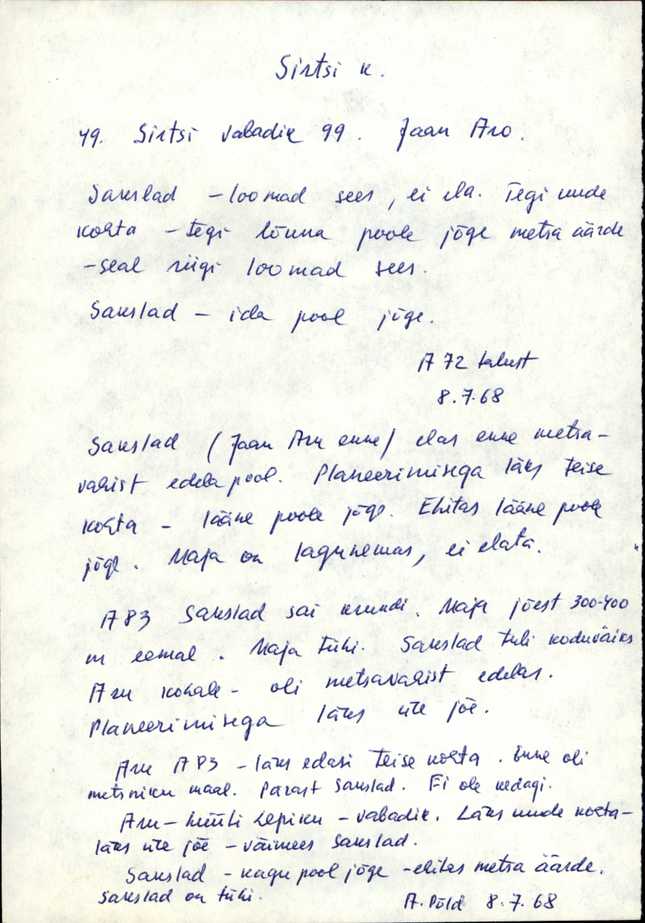 Sirtsi k.
49. Sirtsi vabadik 99. Jaan Aro.
Sakslad – loomad sees, ei ela. Tegi uude
kohta – tegi lõuna poole jõge metsa äärde
– seal riigi loomad sees.
Sakslad – ida pool jõge.
A 72 talust
8.7.68
Sakslad (Jaan Aru enne) elas enne metsa-
vahist edela pool. Planeerimisega läks teise
kohta – lääne poole jõge. Ehitas lääne poole
jõge. Maja on lagunemas, ei elata.
A 83 Sakslad sai krundi. Maja jõest 300-400
m eemal. Maja tühi. Sakslad tuli koduväiks
Aru kohale – oli metsavahist edelas.
Planeerimisega läks üle jõe.
Aru A83 – läks edasi teise kohta. Enne oli
metsniku maal. Pärast Sakslad. Ei ole kedagi.
Aru – hüüti Lepiku – vabadik. Läks uude kohta –
läks üle jõe – väimees Sakslad.
Sakslad – kagu pool jõge – ehitas metsa äärde.
Sakslad on tühi.
A. Põld 8.7.68